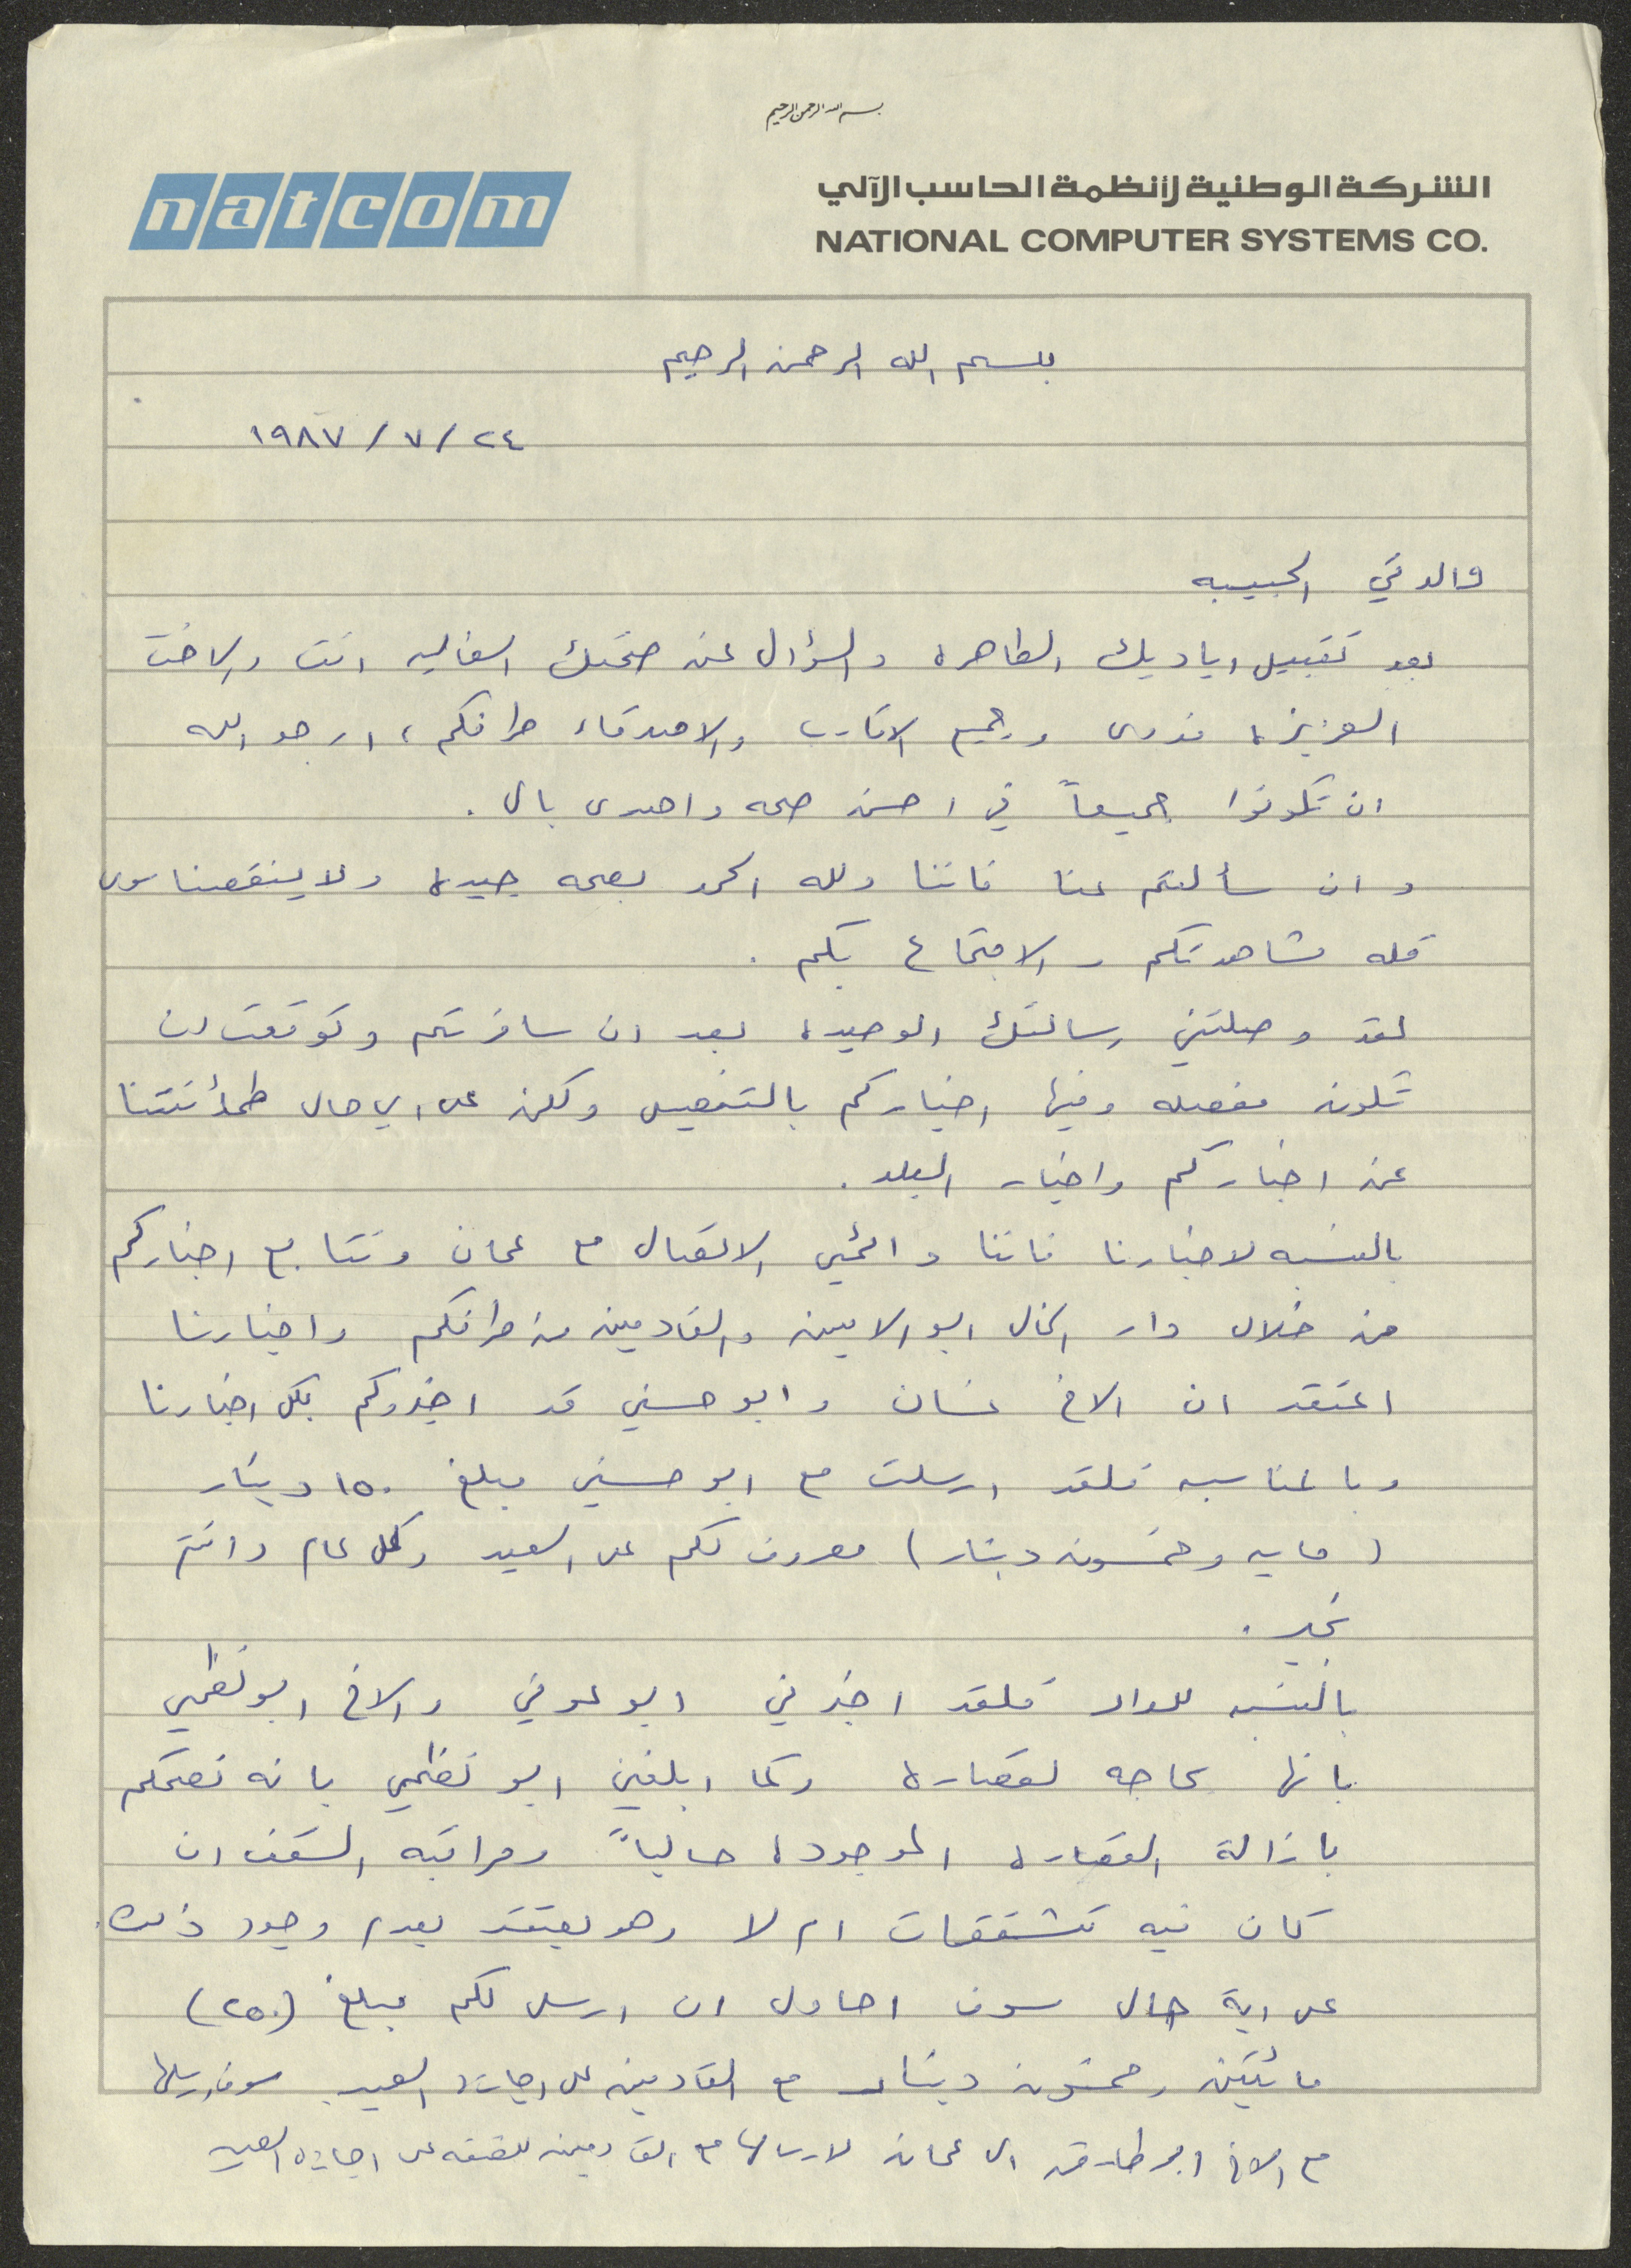 بسم الله الرحمن الرحيم
natcom
الشركة الوطنية لأنظمة الحاسب الآلي
NATIONAL COMPUTER SYSTEMS CO.
بسم الله الرحمن الرحيم
٢٤/ ٧/ ١٩٨٧
والدتي الحبيبه
بعد تقبيل اياديك الطاهره والسؤال عن صحتك الغاليه انت والاخت
العزيزه فدوى وجميع الاقارب والاصدقاء طرافكم، ارجو الله
ان تكونوا جميعاً في احسن صحه واهدى بال .
وان سألتم عنا فاننا ولله الحمد بصحه جيده ولا ينقصنا سوى
قله مشاهدتكم والاجتماع بكم .
لقد وصلتني رسالتك الوحيده بعد ان سافرتم وتوقعت ان
تكون مفصله وفيها اخباركم بالتفصيل ولكن على اي حال طمأنتنا
عن اخباركم واخبار البلد .
بالنسبه لاخبارنا فاننا دائمي الاتصال مع عمان ونتابع اخباركم
من خلال دار الخال ابو الامين والقادمين من طرافكم واخبارنا
اعتقد ان الاخ غسان وابو حسني قد اخبروكم بكل اخبارنا
وبالمناسبه فلقد ارسلت مع ابو حسني مبلغ ١٥٠ دينار
(مايه وخمسون دينار) مصروف لكم على العيد وكل عام وانتم
بخير .
بالنسبه للدار فلقد اخبرني ابو عوني والاخ ابو نظمي
بانها بحاجه لقصاره وكما ابلغني ابو نظمي بانه نصحكم
بازالة القصاره الموجوده حالياً ومراقبه السقف ان
كان فيه تشققات ام لا وهو يعتقد بعدم وجود ذلك.
على اية حال سوف احاول ان ارسل لكم مبلغ (٢٥٠)
مائتين وخمسون دينار مع القادمين على اجازة العيد سوف ارسلها
مع الاخ ابو طارق الى عمان لارسالها مع القادمين للضفه على اجازه العيد